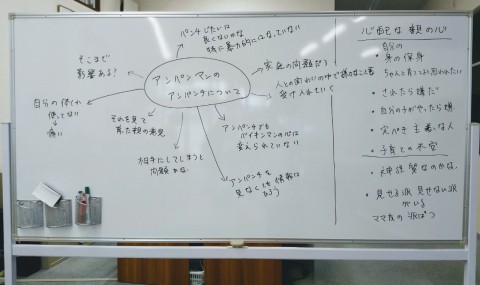 パンチじたいは
良くないのかな
特に暴力的にはなっていない
そこまで
影響ある?
アンパンマンの
アンパンチについて
家庭の問題だろ
人との関わりの中で様々なこと
受け入れていく
自分の体
使ってない
↓
痛い
それを見て
育った親の意見
アンパンチでも
バイキンマンの心は
変えられていない
相手にしてしまうと
問題かな
アンパンチを
見なくても情報は
心配な親の心
自分の
・身の保身
ちゃんと育ってると思われたい
・されたら嫌だ
・自分の子がやったら嫌
・完ぺき主義な人
・子育ての不安
・神経質なのかな。
・見せる派 見せない派
がいる
ママ友の派ばつ